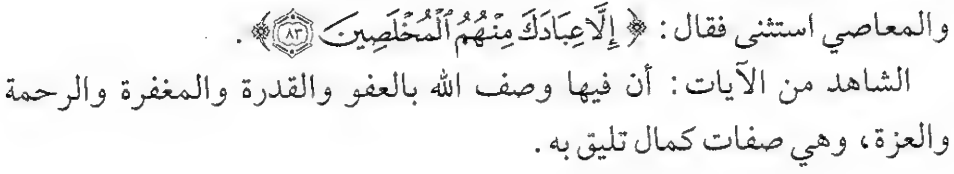 والمعاصي استثنى فقال : ﴿ إِلَّا عِبَادَكَ مِنْهُمُ ٱلْمُخْلَصِينَ ﴿٨٣﴾ ﴾ .
الشاهد من الآيات : أن فيها وصف الله بالعفو والقدرة والمغفرة والرحمة
والعزة ، وهي صفات كمال تليق به .